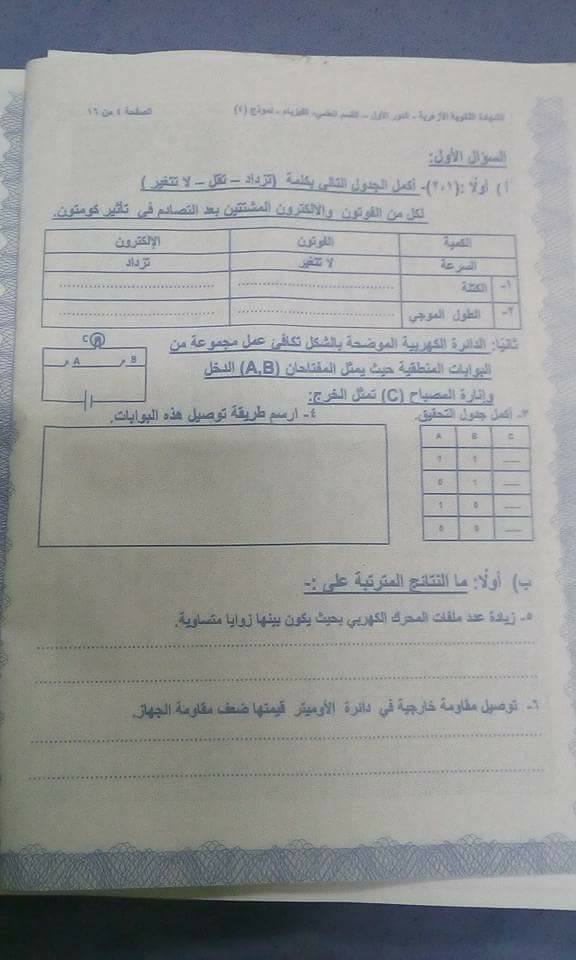 الشهادة الثانوية الأزهرية - الدور الأول - القسم العلمي - الفيزياء - نموذج (٤) الصفحة ٤ من ١٦
السؤال الأول:
أ ) أولاً :(٢،١)- أكمل الجدول التالي بكلمة (تزداد - تقل - لا تتغير )
لكل من الفوتون والالكترون المشتتين بعد التصادم في تأثير كومتون.
الكمية الفوتون الإلكترون
السرعة لا تتغير تزداد
١- الكتلة
٢- الطول الموجي
ثانيًا: الدائرة الكهربية الموضحة بالشكل تكافئ عمل مجموعة من
البوابات المنطقية حيث يمثل المفتاحان (A,B) الدخل
وإنارة المصباح (C) تمثل الخرج:
C
A B
٣- أكمل جدول التحقيق. ٤- ارسم طريقة توصيل هذه البوابات.
A B C
1 1
0 1
1 0
0 0
ب) أولاً: ما النتائج المترتبة على :-
٥- زيادة عدد ملفات المحرك الكهربي بحيث يكون بينها زوايا متساوية.
٦- توصيل مقاومة خارجية في دائرة الأوميتر قيمتها ضعف مقاومة الجهاز.